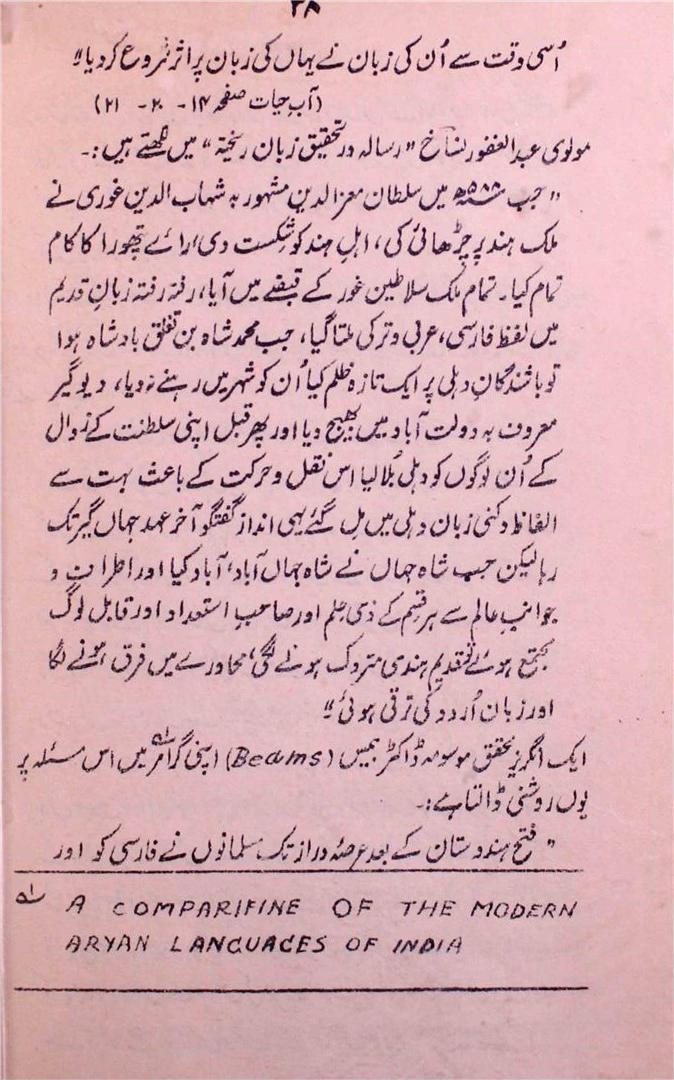 ۳۸
اُسی وقت سے اُن کی زبان نے یہاں کی زبان پر اثر شروع کر دیا"
(آبِ حیات صفحہ ۱۴۔ ۲۰۔ ۲۱)
مولوی عبد الغفور نساخؔ "رسالہ در تحقیق زبان ریختہ" میں لکھتے ہیں:۔
"جب ۵۸۸ھ میں سلطان معز الدین مشہور بہ شہاب الدین غوری نے
ملک ہند پر چڑھائی کی، اہلِ ہند کو شکست دی، رائے پتھورا کا کام
تمام کیا۔ تمام ملک سلاطین غور کے قبضے میں آیا، رفتہ رفتہ زبانِ قدیم
میں لفظ فارسی، عربی و ترکی ملتا گیا، جب محمد شاہ بن تغلق بادشاہ ہوا
تو باشندگانِ دہلی پر ایک تازہ ظلم کیا اُن کو شہر میں رہنے نہ دیا، دیوگیر
معروف بہ دولت آباد میں بھیج دیا اور پھر قبل اپنی سلطنت کے زوال
کے اُن لوگوں کو دہلی بُلا لیا اس نقل و حرکت کے باعث بہت سے
الفاظ دکنی زبان دہلی میں مل گئے یہی انداز گفتگو آخر عہد جہاں گیر تک
رہا لیکن جب شاہ جہاں نے شاہ جہاں آباد، آباد کیا اور اطراف و
جوانبِ عالم سے ہر قسم کے ذی علم اور صاحبِ استعداد اور قابل لوگ
مجتمع ہوئے تو قدیم ہندی متروک ہونے لگی، محاورے میں فرق ہونے لگا
اور زبان اُردو کی ترقی ہوئی"
ایک انگریز محقق موسومہ ڈاکٹر بیمس (Beams) اپنی گرامر۱ میں اس مسئلہ پر
یوں روشنی ڈالتا ہے:۔
"فتح ہندوستان کے بعد عرصۂ دراز تک مسلمانوں نے فارسی کو اور
۱ A COMPARIFINE OF THE MODERN
ARYAN LANGUAGES OF INDIA